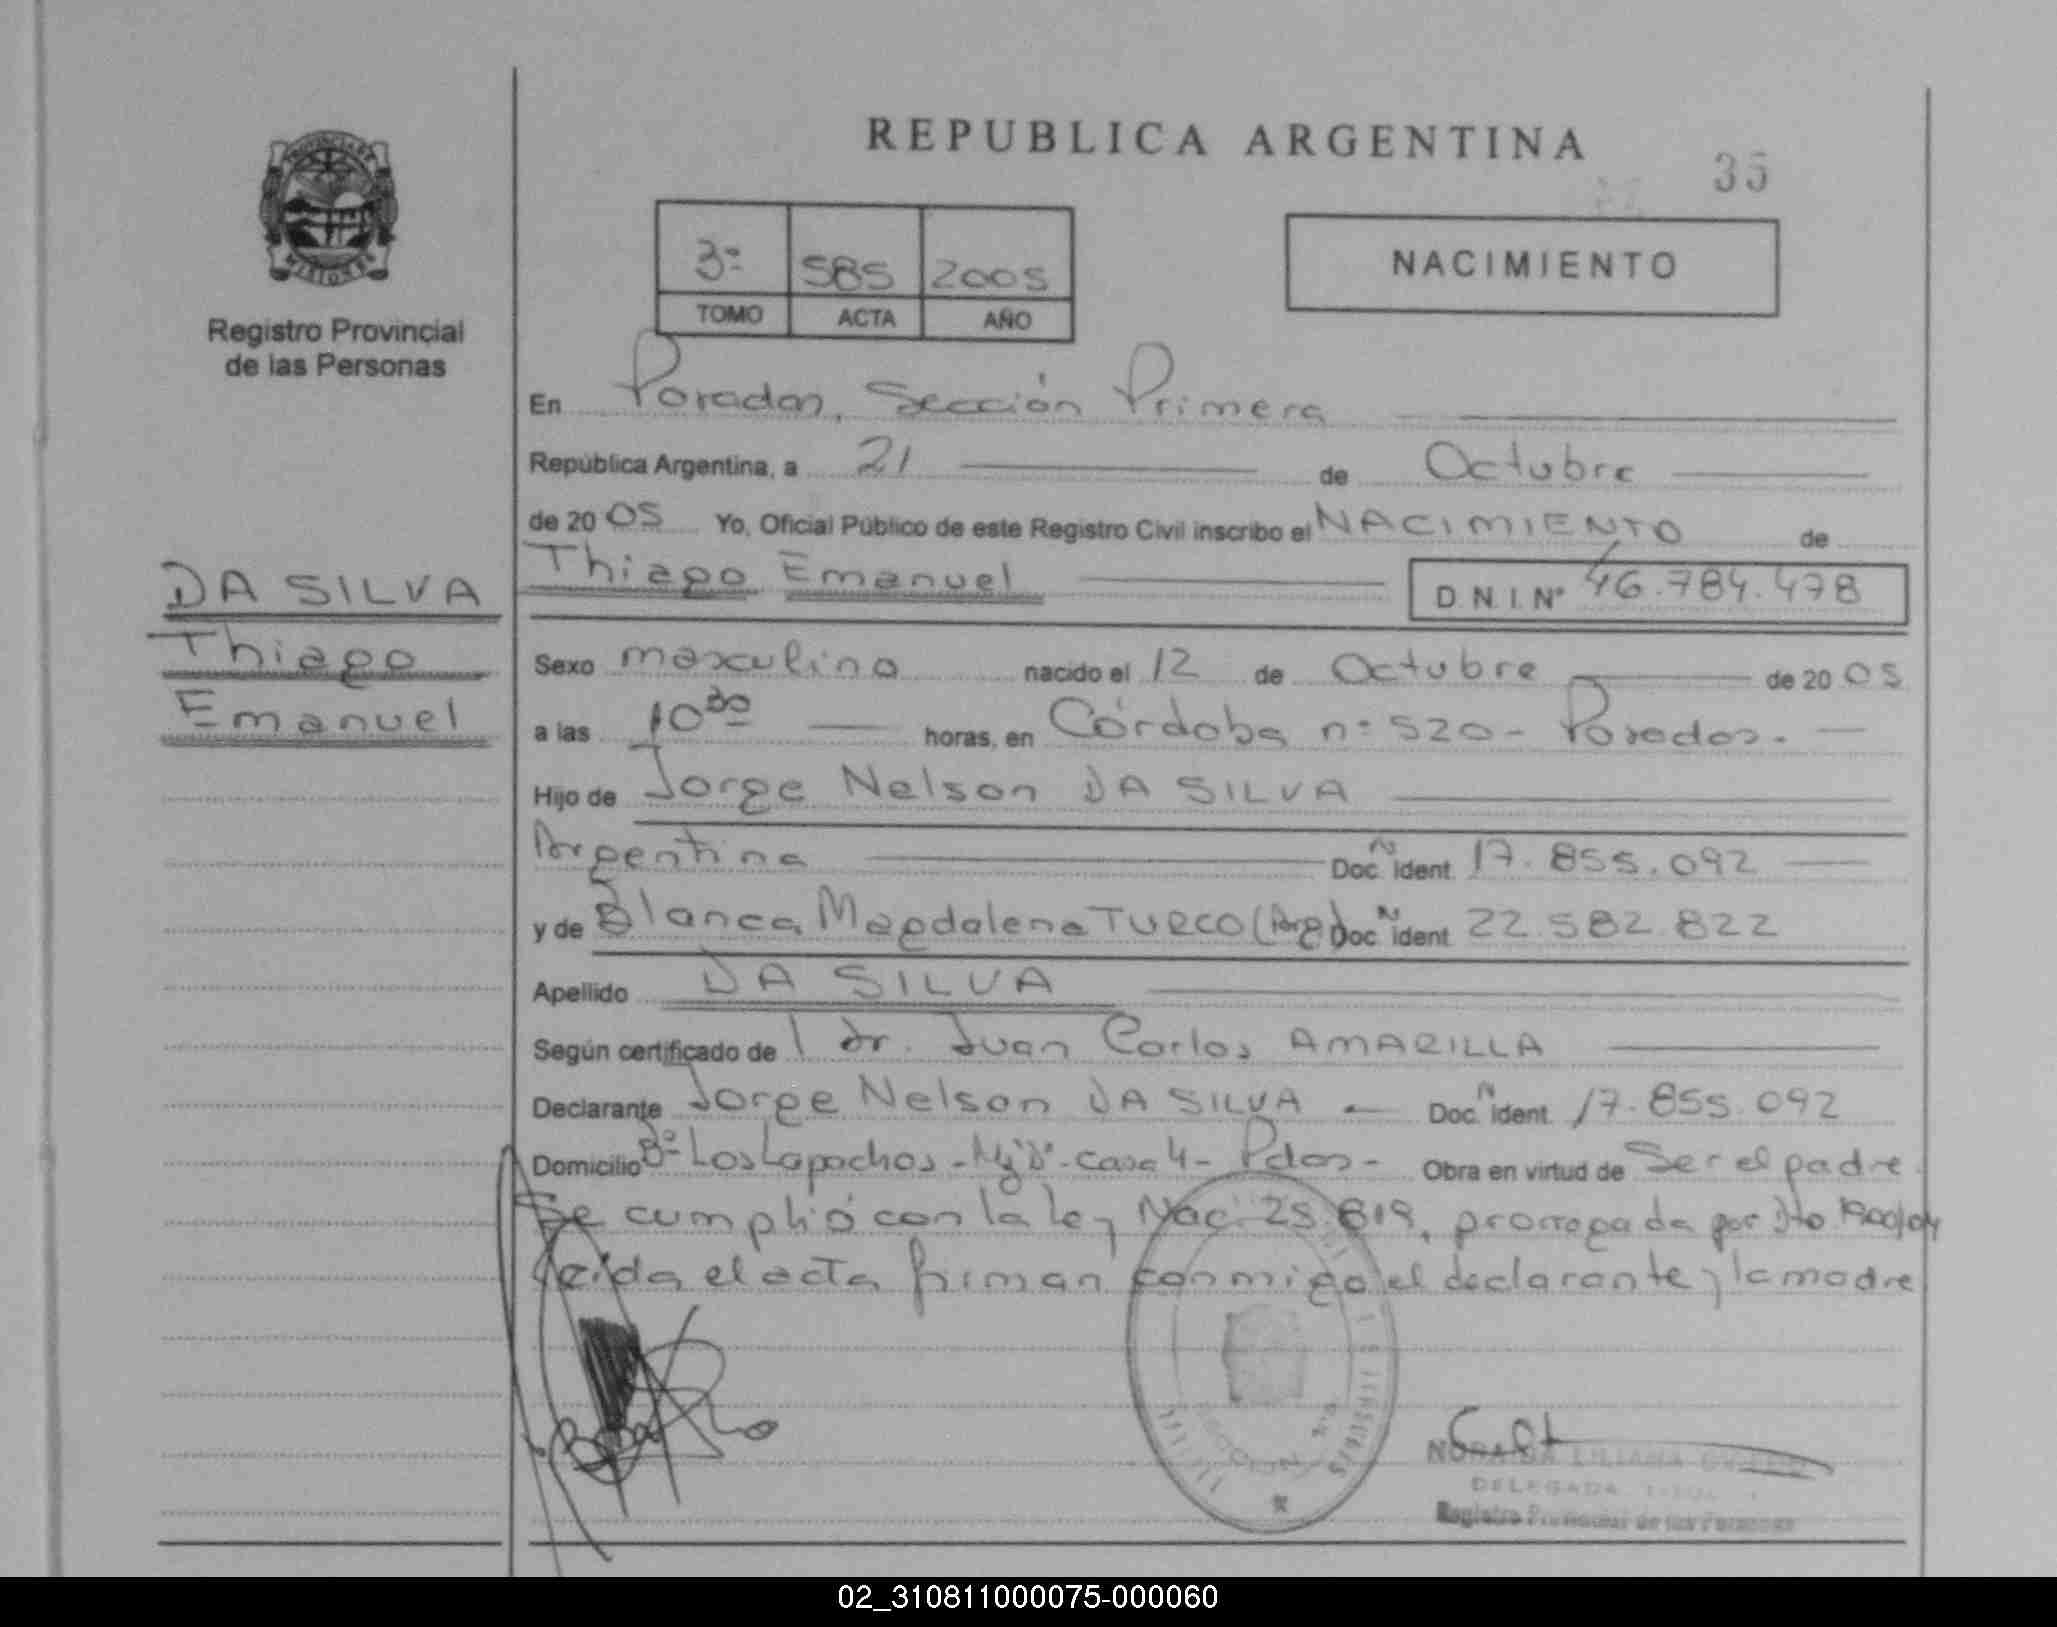 REPUBLICA ARGENTINA
35
PROVINCIA DE
MISIONES
Registro Provincial
de las Personas
3º 585 2005
TOMO ACTA AÑO
NACIMIENTO
En Posadas, Sección Primera
República Argentina, a 21 de Octubre
de 2005 Yo, Oficial Público de este Registro Civil inscribo el NACIMIENTO de
Thiago Emanuel D.N.I. Nº 46.784.478
DA SILVA
Thiago
Emanuel
Sexo masculino nacido el 12 de Octubre de 2005
a las 10 30 horas, en Córdoba nº 520 - Posadas. -
Hijo de Jorge Nelson DA SILVA
Argentina Doc. N Ident. 17.855.092
y de Blanca Magdalena TURCO (Arg) Doc. N Ident. 22.582.822
Apellido DA SILVA
Según certificado de l Dr. Juan Carlos AMARILLA
Declarante Jorge Nelson DA SILVA - Doc. N Ident. 17.855.092
Domicilio Bº Los Lapachos - Mz "D" - casa 4 - Pdas - Obra en virtud de Ser el padre.
Se cumplió con la ley Nac. 25.819, prorrogada por Dto 1900/04
leida el acta firman conmigo el declarante y la madre
LILIANA
DELEGADA
Registro Provincial de las Personas
02_310811000075-000060